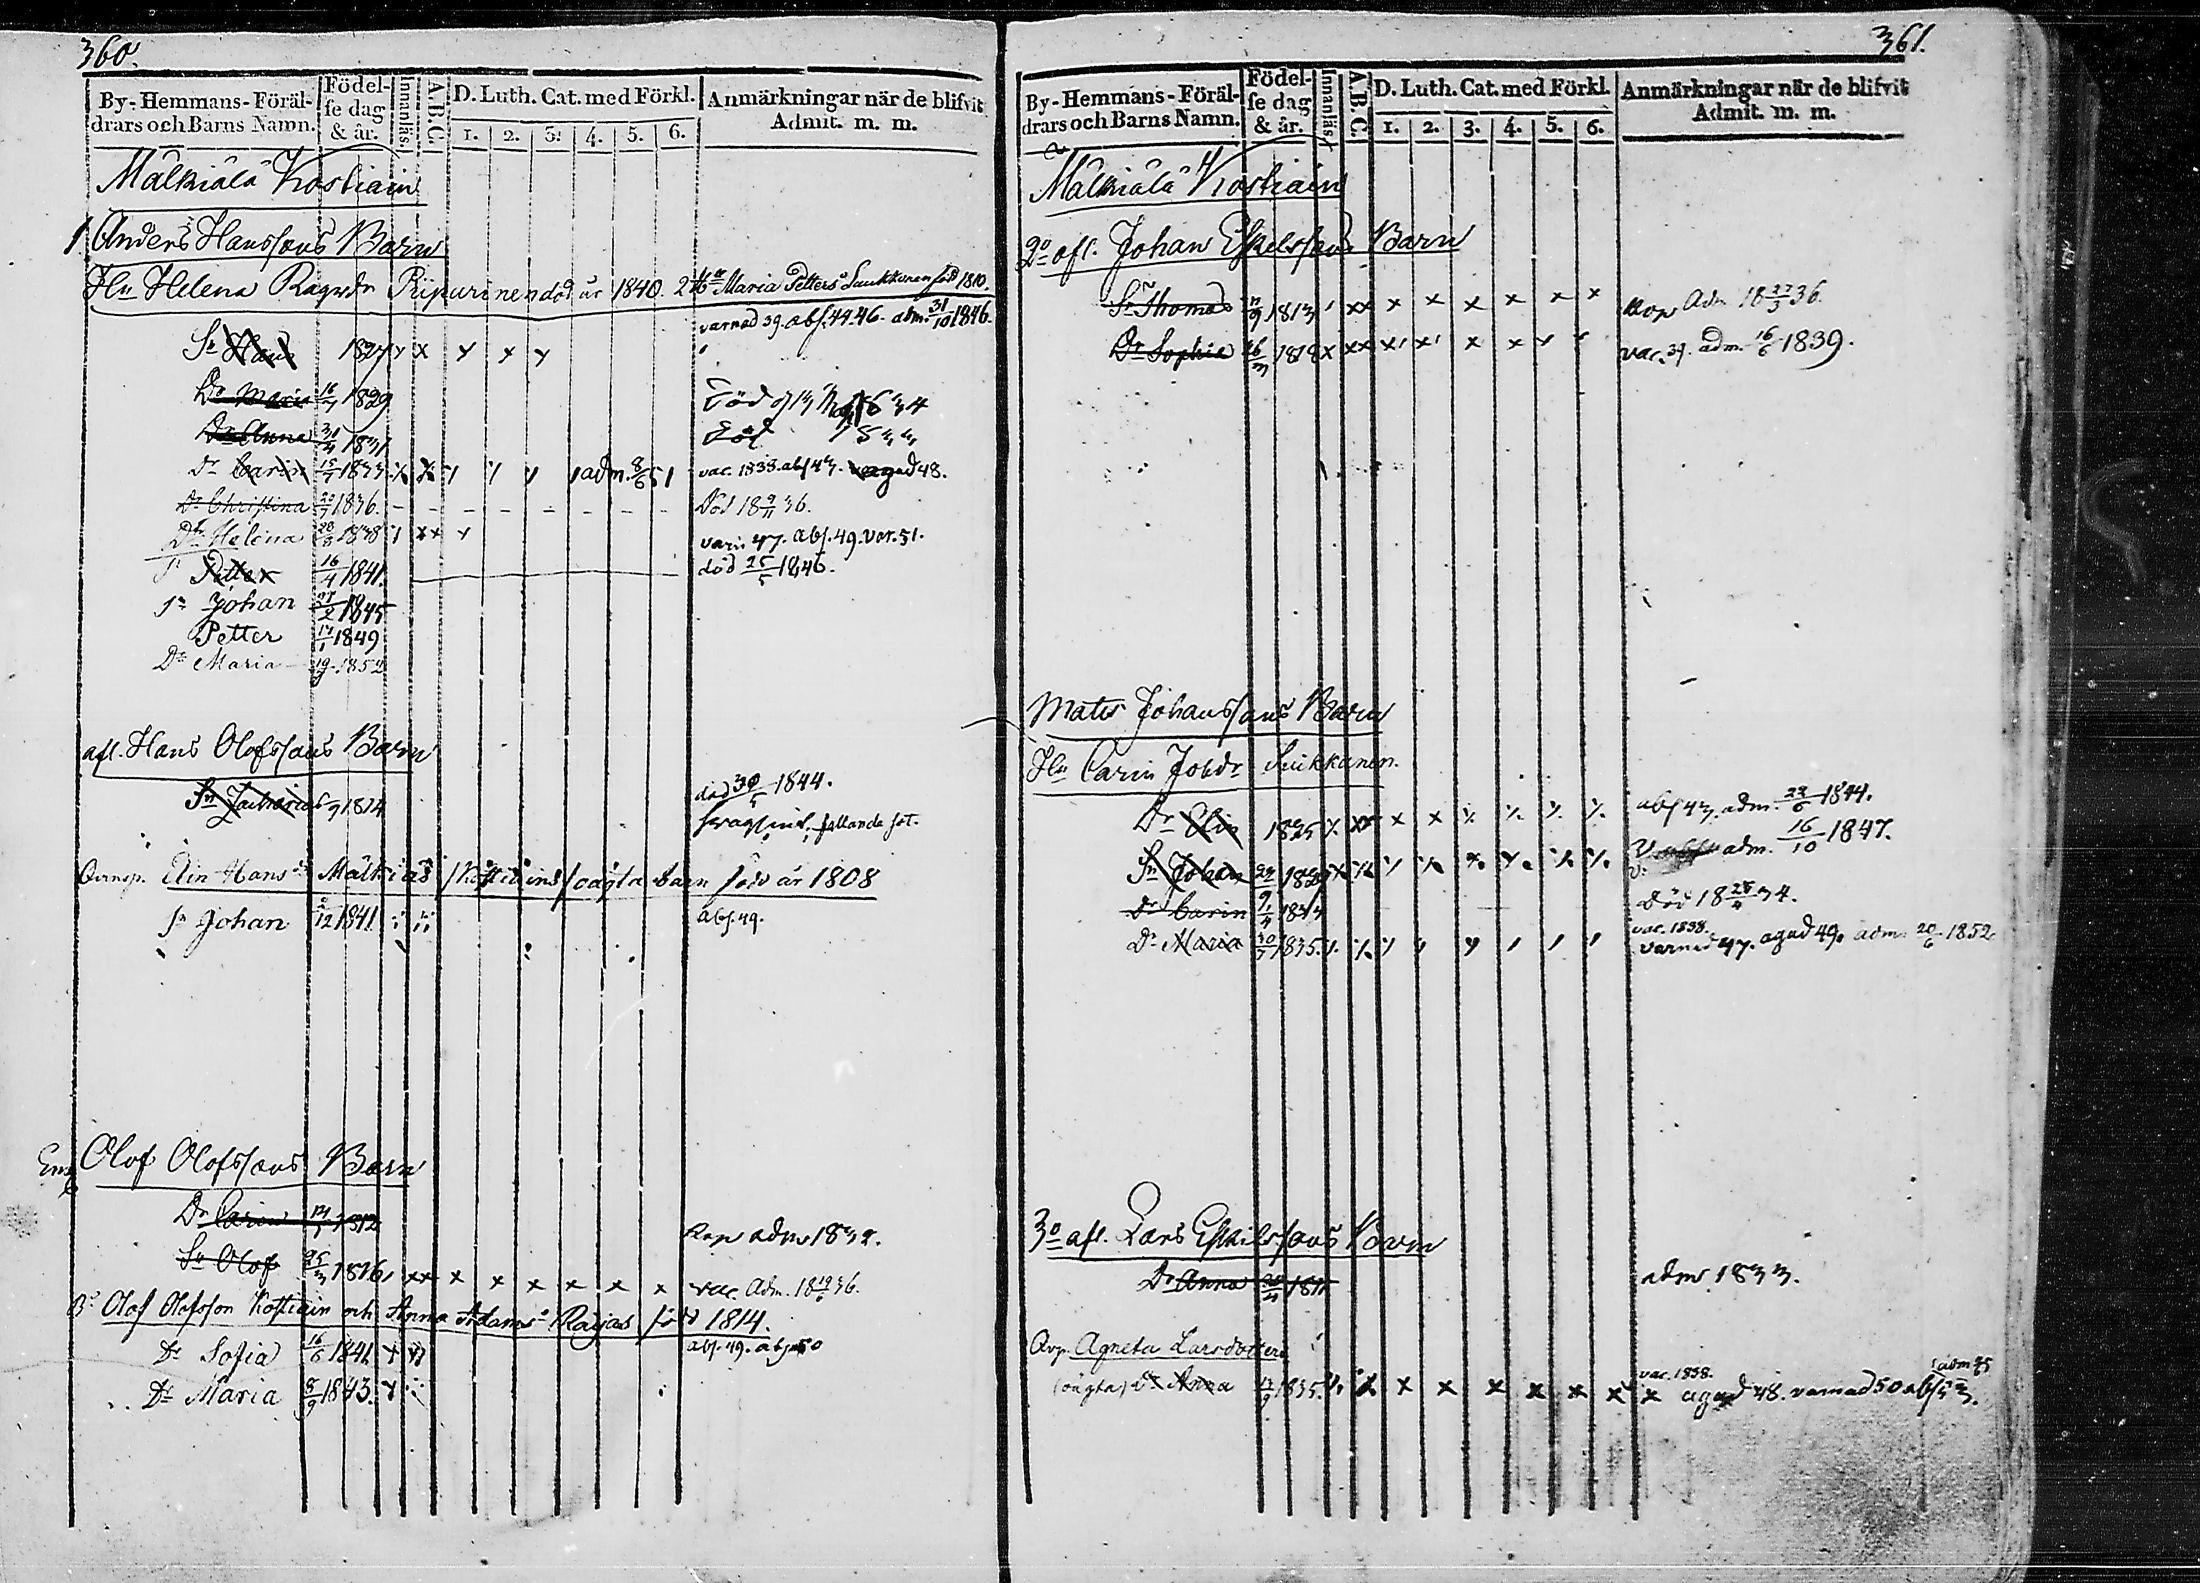 360.
By-Hemmans-Föräl-
drars och Barns Namn.
Födel-
se dag
& år.
Innanläs.
A.B.C.
D. Luth. Cat. med Förkl.
1. 2. 3. 4. 5. 6.
Anmärkningar när de blifvit
Admit. m. m.
Mälkiälä Kostiain
1. Anders Hanssons Barn
Hu Helena Ragndr Ripurinen död år 1840. 2 Maria Petters Luukkanen föd 1810.
Sn Hans 1827 x x x x x varnad 39. abs. 44. 46. adm. 31/10 1846.
Dr Maria 16/7 1829 Död 1834
Dr Anna 1831 Död
Dr Carin 15/7 1833 adm. 8/6 51 vac. 1838. abs 47. agad 48.
Dr Christina 20/7 1836. - - - - - - - Död 18 9/11 36.
Dr Helena 28/8 1838 x x x abs. 49. var. 51.
Sn Petter 16/4 1841. död 25/5 1846.
Sn Johan 27/2 1845
Petter 17/1 1849
Dr Maria 185
afl. Hans Olofssons Barn
Sn Zacharias 6/9 1814 död 30/5 1844.
fallande sot.
Elin Hans Mälkiäs Kostiains oägta barn född år 1808
Sn Johan 12 1841 abs. 49.
Olof Olofssons Barn
Dr Carin 1812 Kop adm 1832.
Sn Olof 25/3 1816 xx x x x x x x vac. Adm. 18 19/6 36.
Olof Olofsson Kostiain och Anna Adams Raijas född 1814.
Dr Sofia 16/6 1841 abs. 49. abs 50
Dr Maria 8/9 1843.
361.
By-Hemmans-Föräl-
drars och Barns Namn.
Födel-
se dag
& år.
Innanläs.
A.B.C.
D. Luth. Cat. med Förkl.
1. 2. 3. 4. 5. 6.
Anmärkningar när de blifvit
Admit. m. m.
Mälkiälä Kostiain
2o afl. Johan Eskelssons Barn
Sn Thomas 1813 xx x x x x x x Kop Adm 18 27/3 36.
Dr Sophia 26/3 1818 x xx x x x x x x vac. 37. adm. 16/6 1839.
Mats Johanssons Barn
Hu Carin Johdr Suikkanen.
Dr Elin 1825 abs 43. adm. 23/6 1844.
Sn Johan adm. 16/10 1847.
Dr Carin 9/4 Död 18 34.
Dr Maria 30/7 1835. vac. 1838.
varnad 47. agad 49. adm. 20/6 1852.
3o afl. Lars Eskilssons Barn
Dr Anna 1811 adm 1833.
Agneta Larsdotters
(oägta) Dr Anna 1835. x x x x x x x x vac. 1838. agad 48. varnad 50 abs